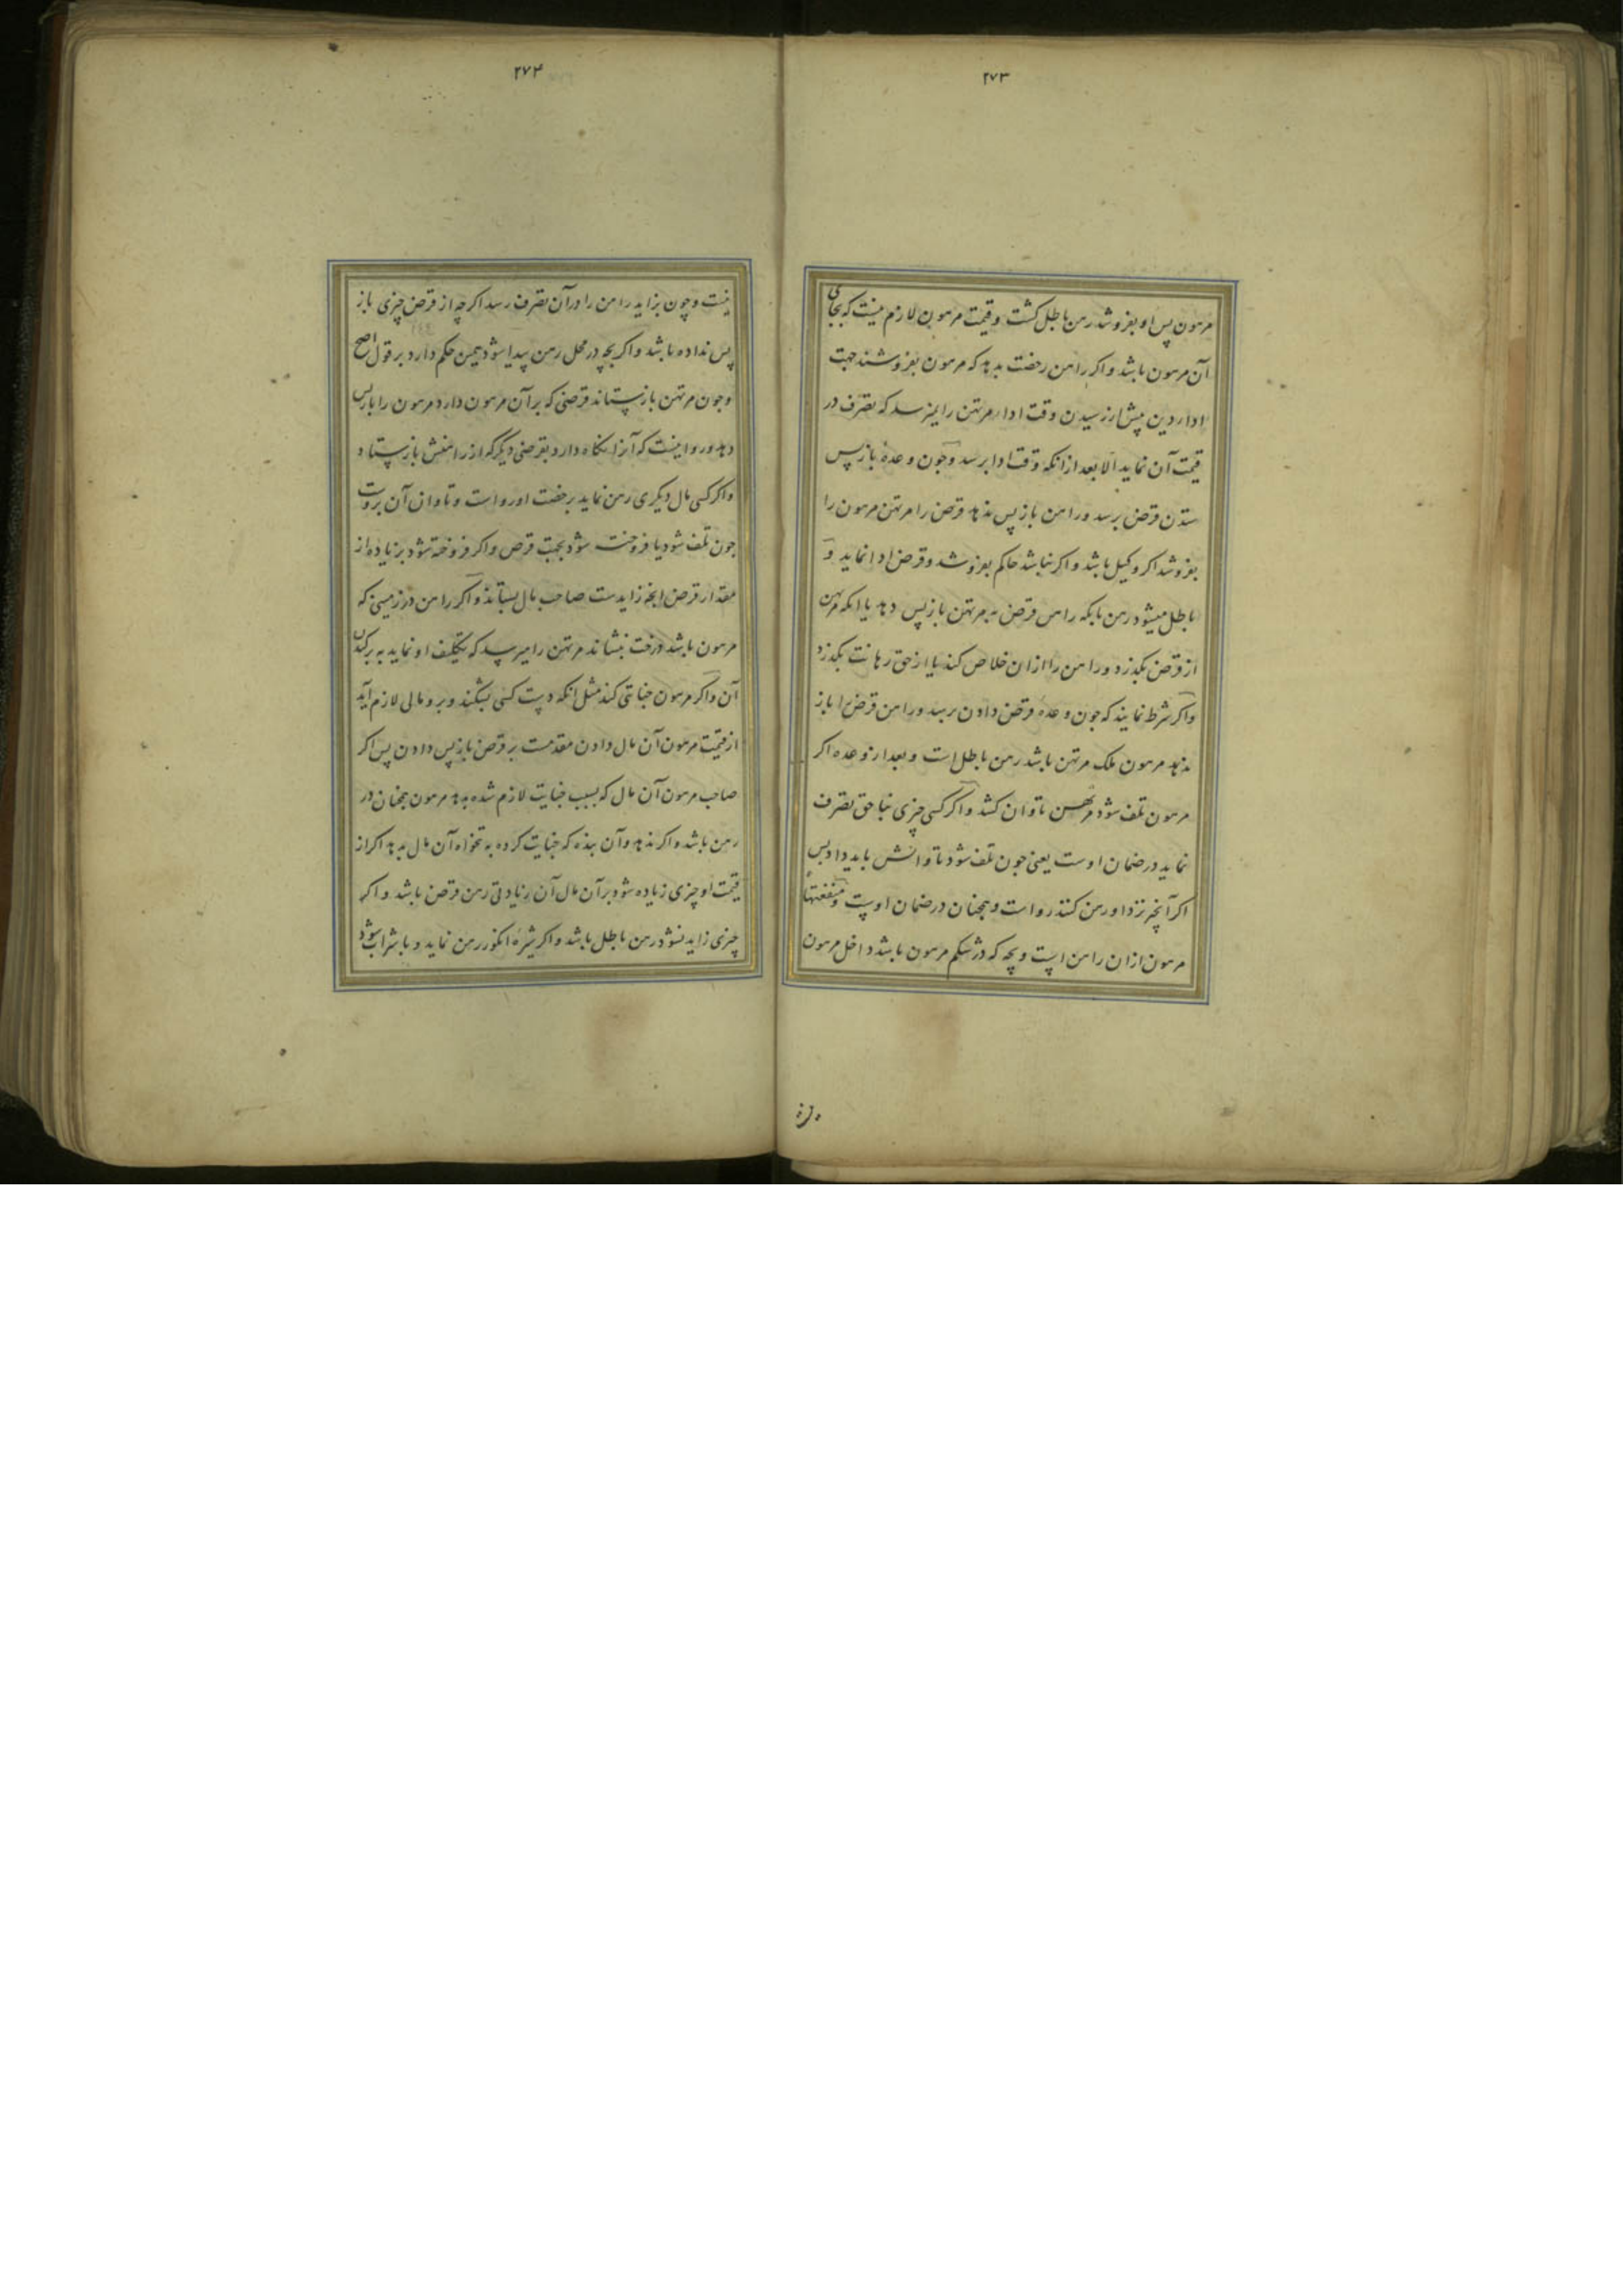 ۲۷۳
مرهون پس او بفروشد رهن باطل کشت و قیمت مرهون لازم نیست که بجای
آن مرهون باشد و اکر راهن رخصت بدهد که مرهون بفروشند جهت
اداء دین پیش از رسیدن وقت ادا مرتهن را نمیرسد که تصرف در
قیمت آن نماید الا بعد از انکه وقت ادا برسد و چون وعدهٔ بازپس
ستدن قرض برسد و راهن باز پس ندهد قرض را مرتهن مرهون را
بفروشد اکر وکیل باشد و اکر نباشد حاکم بفروشد و قرض ادا نماید و
باطل میشود رهن بانکه راهن قرض به مرتهن بازپس دهد یا انکه مرتهن
از قرض بکذرد و راهن را ازان خلاص کند یا از حق رهانت بکذرد
و اکر شرط نمایند که چون وعده قرض دادن برسد و راهن قرض را باز
ندهد مرهون ملک مرتهن باشد رهن باطل است و بعد از وعده اکر
مرهون تلف شود مرتهن تاوان کشد و اکر کسی چیزی بنا حق تصرف
نماید در ضمان اوست یعنی چون تلف شود تاوانش باید داد پس
اکر آنچیز نزد او رهن کنند رواست و همچنان در ضمان اوست و منفعتهاء
مرهون ازان راهن است و بچه که در شکم مرهون باشد داخل مرهون
۲۷۴
نیست و چون بزاید راهن را دران تصرف رسد اکرچه از قرض چیزی باز
پس نداده باشد و اکر بچه در محل رهن پیدا شود همین حکم دارد بر قول اصح
و چون مرتهن باز ستاند قرضی که بر آن مرهون دارد مرهون را بازپس
دهد و روا نیست که آنرا نکاه دارد بقرضی دیکر که از راهنش باز ستاند
و اکر کسی مال دیکری رهن نماید برخصت او رواست و تاوان آن بروست
چون تلف شود یا فروخته شود بجهت قرض و اکر فروخته شود بزیاده از
مقدار قرض انچه زایدست صاحب مال بستاند و اکر راهن در زمینی که
مرهون باشد درخت بنشاند مرتهن را میرسد که تکلیف او نماید به برکندن
آن و اکر مرهون جنایتی کند مثل انکه دست کسی بشکند و برو مالی لازم آید
از قیمت مرهون آن مال دادن مقدمست بر قرض بازپس دادن پس اکر
صاحب مرهون آن مال که بسبب جنایت لازم شده بدهد مرهون همچنان در
رهن باشد و اکر ندهد و آن بنده که جنایت کرده به تنخواه آن مال بدهد اکر از
قیمت او چیزی زیاده شود بر آن مال آن زیادتی رهن قرض باشد و اکر
چیزی زاید نشود رهن باطل باشد و اکر شیره انکور رهن نماید و با شراب شود